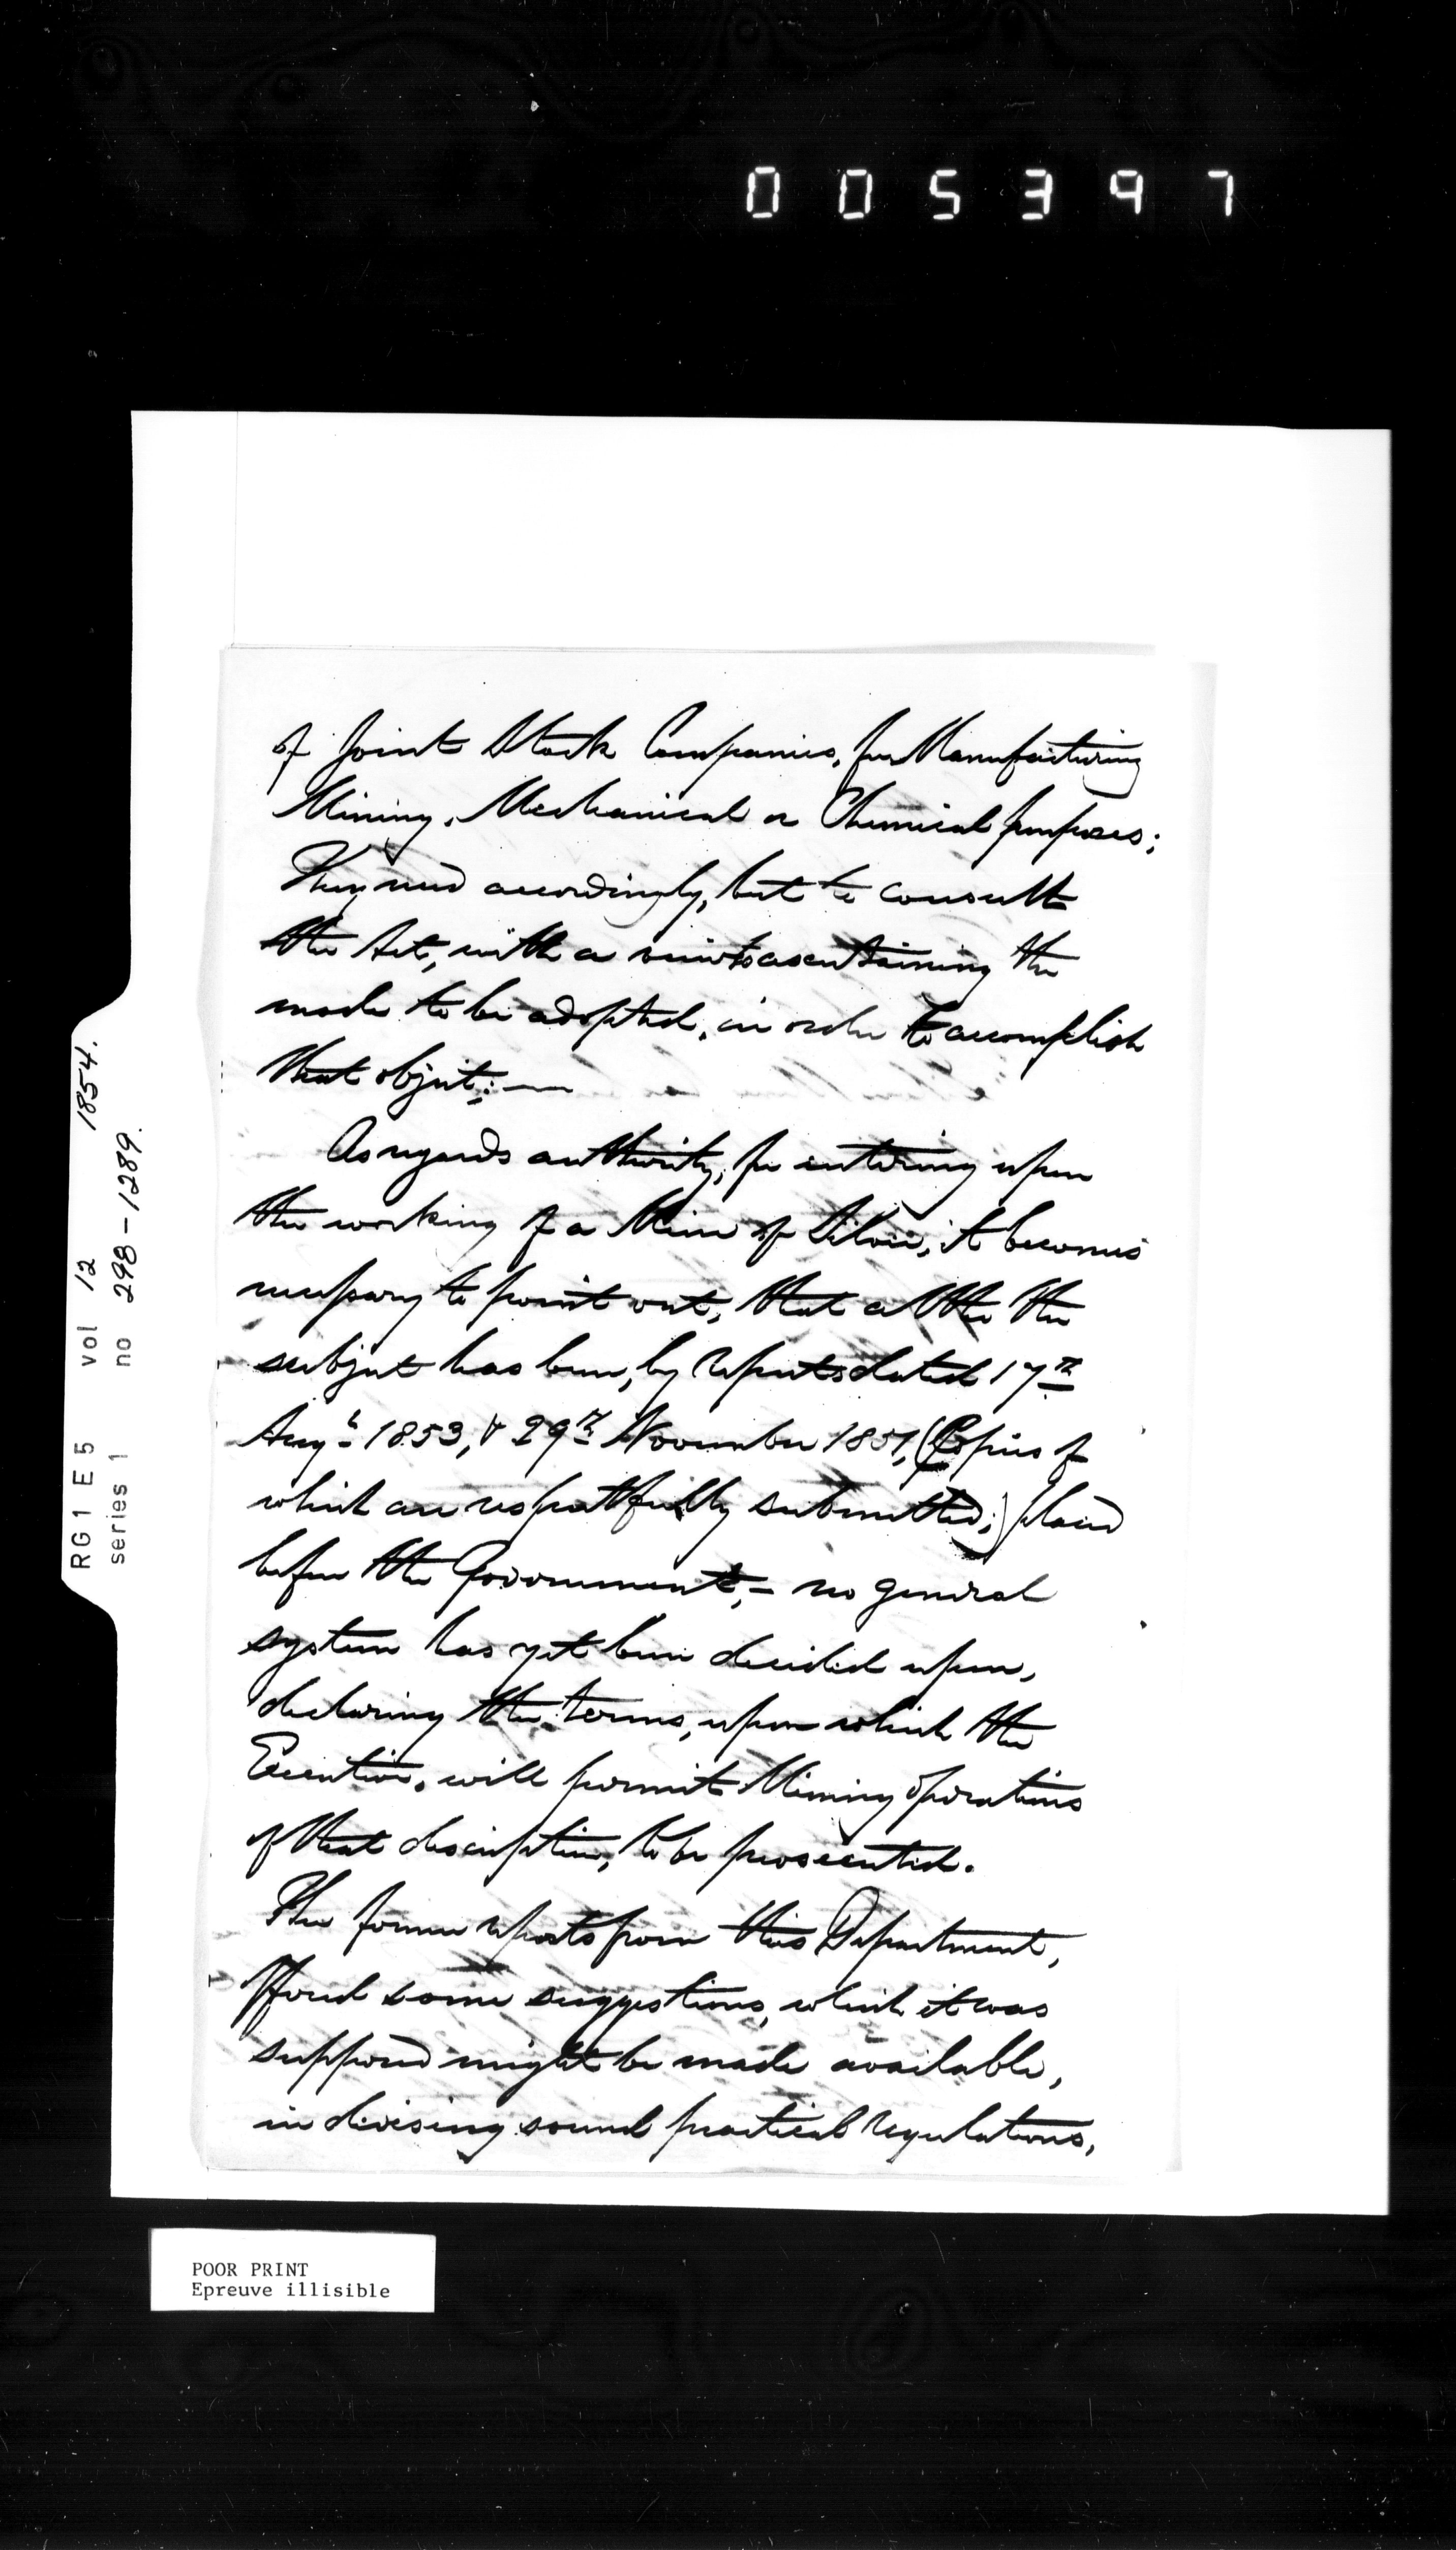 005397
of Joint Stock Companies, for Manufacturing
Mining, Mechanical or Chemical purposes;
They need accordingly, but to consult
the Act, with a view to ascertaining the
mode to be adopted, in order to accomplish
that object;—
As regards authority, for entering upon
the working of a Mine of Silver, it becomes
necessary to point out, that altho the
subject has been, by reports dated 17th
Augt 1853, & 29th November 1851, (Copies of
which are respectfully submitted;) placed
before the Government,— no general
system has yet been decided upon,
declaring the terms, upon which the
Executive, will permit Mining operations
of that description, to be prosecuted.
The former reports from this Department,
afford some suggestions, which it was
supposed might be made available,
in devising sound practical regulations,
RG1 E5 vol 12 1854.
series 1 no 298-1289.
POOR PRINT
Epreuve illisible